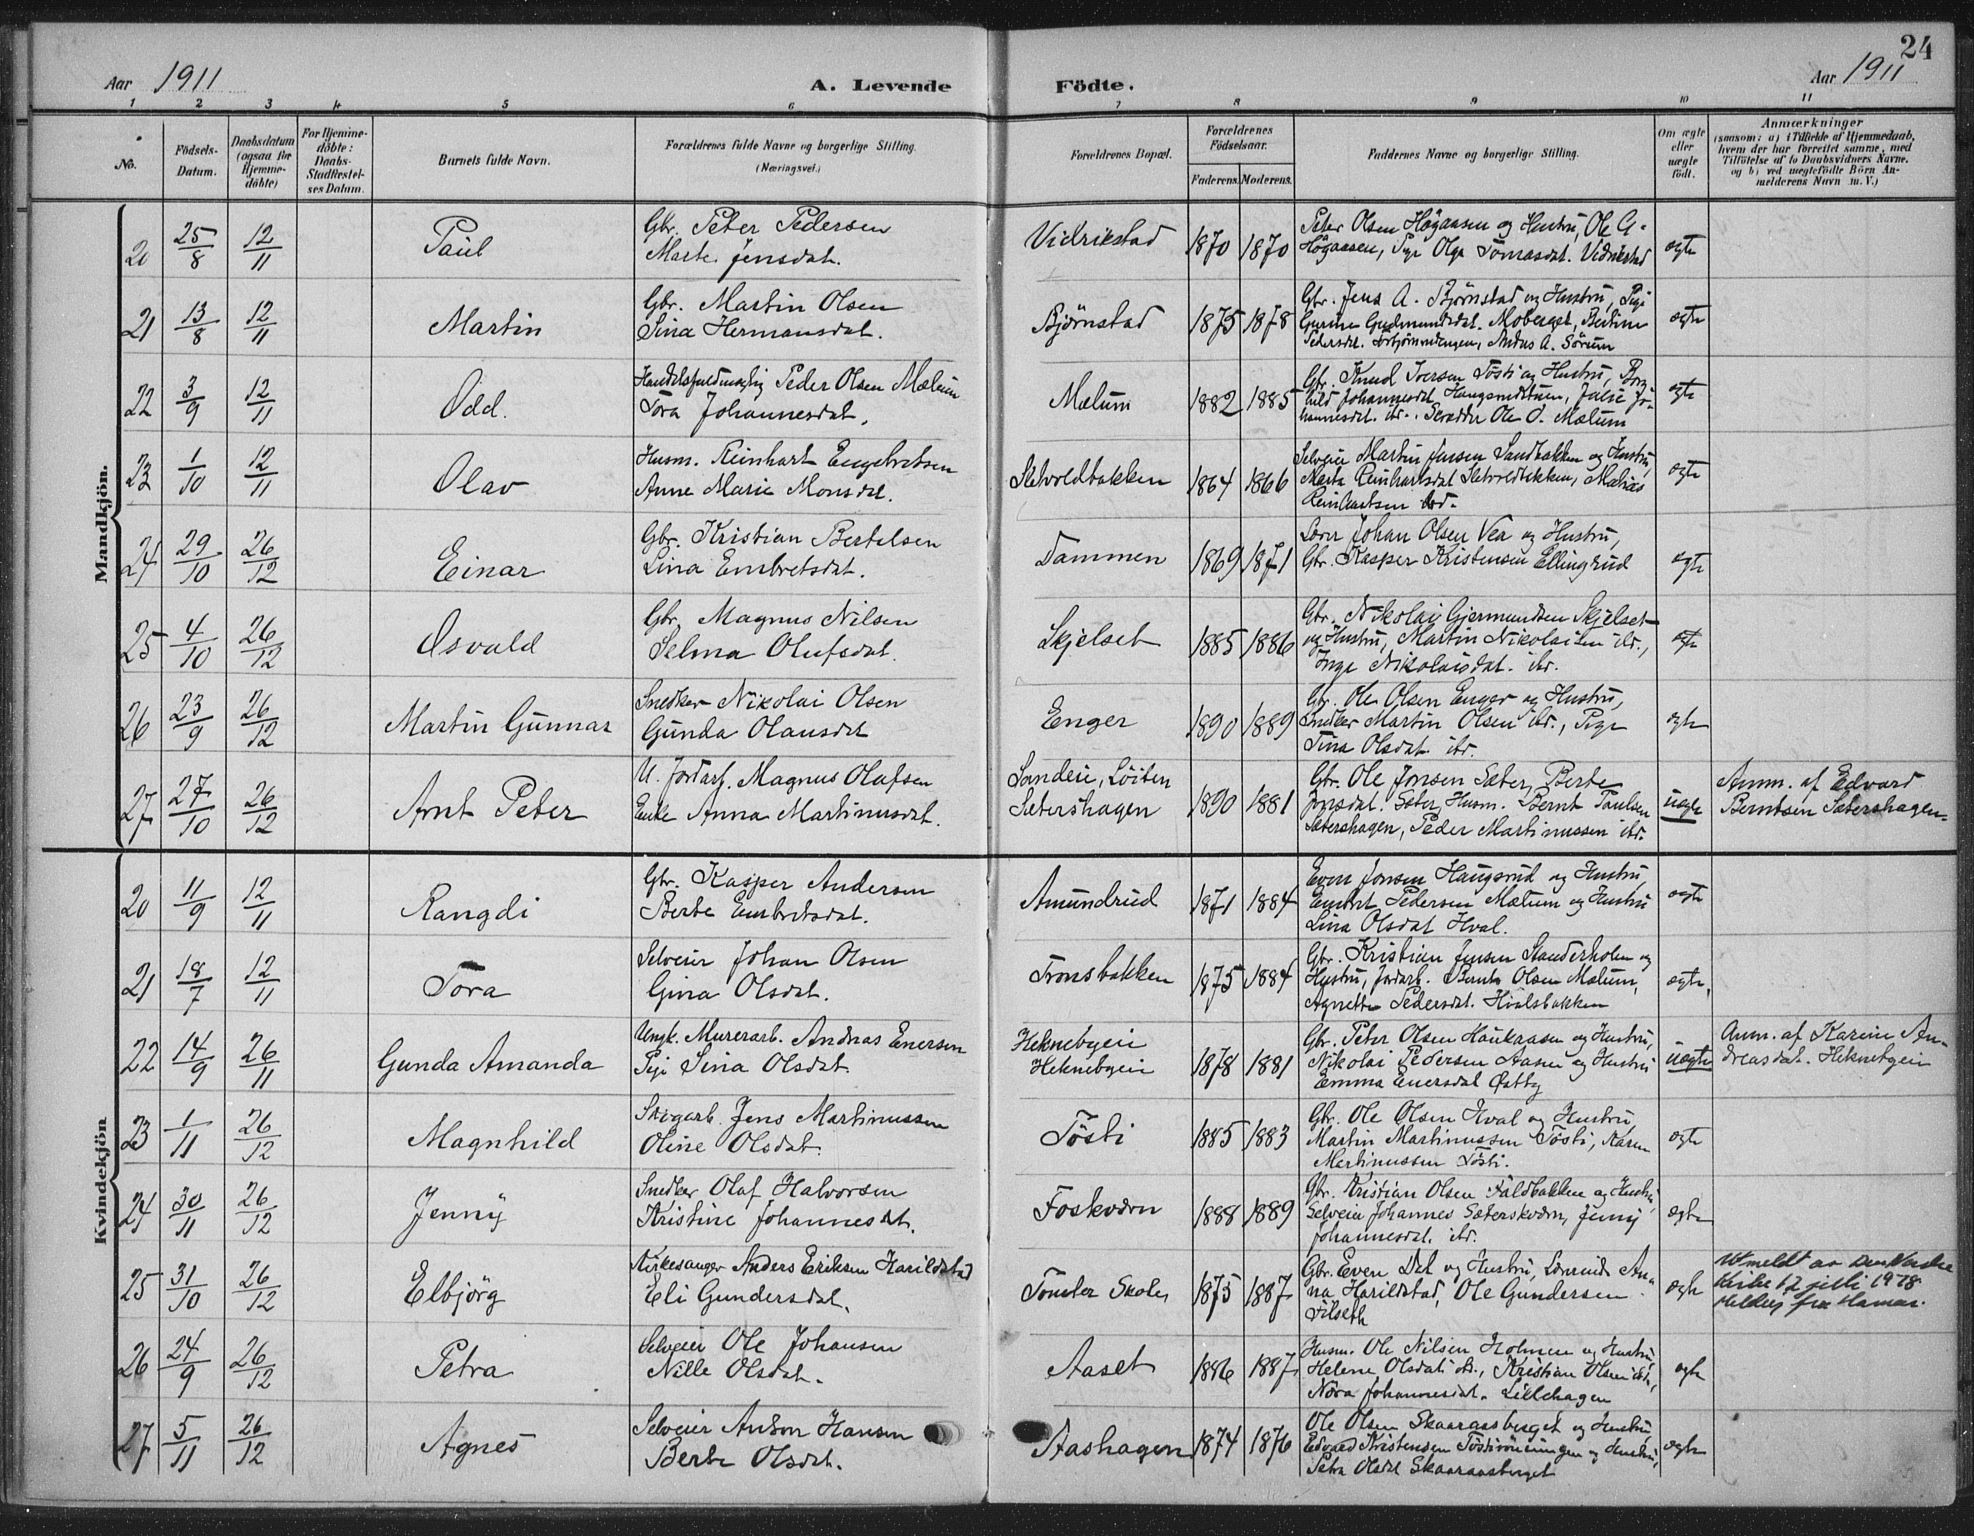 24
Aar 1911 A. Levende Födte. Aar 1911
1 2 3 4 5 6 7 8 9 10 11
No.
Födsels-
Datum.
Daabsdatum
(ogsaa for
Hjemme-
döbte)
For Hjemme-
döbte:
Daabs-
Stadfæstel-
ses Datum.
Barnets fulde Navn.
Forældrenes fulde Navne og borgerlige Stilling.
(Næringsvei.)
Forældrenes Bopæl.
Forældrenes
Födselsaar.
Faderens. Moderens.
Faddernes Navne og borgerlige Stilling.
Om ægte
eller
uægte
födt.
Anmærkninger
(saasom: a) i Tilfælde af Hjemmedaab,
hvem der har forrettet samme, med
Tilföielse af to Daabsvidners Navne.
og b) ved uægtefödte Börn An-
melderens Navn m. V.)
Mandkjön.
20 25/8 12/11 Paul
Gbr. Peter Pedersen
Marte Jensdat.
Vidrikstad 1870 1870
Peter Olsen Högaasen og Hustru, Ole G.
Högaasen, Pige Olga Tomasdat. Vidrikstad
ægte
21 13/8 12/11 Martin
Gbr. Martin Olsen
Sina Hermansdat.
Bjørnstad 1875 1878
Gbr. Jens A. Bjørnstad og Hustru, Pige
Gurine Gudmundsdat. Moberget, Bertine
Pedersdat. Andres A. Sörum
ægte
22 3/9 12/11 Odd.
Handelsfuldmægtig Peder Olsen Mælum
Tora Johannesdat.
Mælum 1882 1885
Gbr. Knud Iversen Tösti og Hustru, Borg-
hild Johannesdat. Haugsrudstuen, Julie Jo-
hannesdat. ibr. Skrædder Ole O. Mælum
ægte
23 1/10 12/11 Olav
Husm. Reinhart Engebretsen
Anne Marie Monsdat.
Sletvoldbakken 1864 1866
Selveier Martin Jensen Sandbakken og Hustru,
Marta Reinhartsdat Sletvoldbakken, Matias
Reinhartsen ibd.
ægte
24 29/10 26/12 Einar
Gbr. Kristian Bertelsen
Lina Embretsdat.
Dammen 1869 1871
Johan Olsen Vea og Hustru,
Gbr. Kasper Kristensen Ellingsrud
ægte
25 4/10 26/12 Osvald
Gbr. Magnus Nilsen
Selma Olufsdat.
Skjelset 1885 1886
Gbr. Nikolai Gjermundsen Skjelset
og Hustru, Martin Nikolaisen ibr.,
Inga Nikolaisdat. ibr.
ægte
26 23/9 26/12 Martin Gunnar
Snedker Nikolai Olsen
Gunda Olausdat
Enger 1890 1889
Gbr. Ole Olsen Enger og Hustru,
Snedker Martin Olsen ibr., Pige
Tina Olsdat ibr.
ægte
27 27/10 26/12 Arnt Peter
U. Jordarb. Magnus Olafsen
Enke Anna Martinusdat.
Sandeie, Löiten
Sætershagen
1890 1881
Gbr. Ole Jonsen Sæter, Berte
Jonsdat. Sæter, Husm. Bernt Paulsen
Sætershagen, Peder Martinussen ibr.
uægte
Anm. af Edvard
Berntsen Sætershagen.
Kvindekjön
20 11/9 12/11 Rangdi
Gbr. Kasper Andersen
Berte Embretsdat.
Amundrud 1871 1884
Even Jonsen Haugsrud og Hustru,
Embret Pedersen Mælum og Hustru
Lina Olsdat Hval.
ægte
21 18/7 12/11 Tora
Selveier Johan Olsen
Gina Olsdat.
Tronsbakken 1875 1884
Gbr. Kristian Jensen Standerholen og
Hustru, Jordarb. Bernt Olsen Mælum,
Agnette Pedersdat. Hvalsbakken
ægte.
22 14/9 26/11 Gunda Amanda
Ungk. Murerarb. Andreas Enersen
Pige Sina Olsdat
Heknebyeie
Heknebyeie
1878 1881
Gbr. Peter Olsen Haukaasen og Hustru,
Nikolai Pedersen Aasen og Hustru
Emma Enersdat Østby
uægte
Anm. af Karine An-
dreasdat. Heknebyeie
23 1/11 26/12 Magnhild
Skogarb. Jens Martinussen
Oline Olsdat.
Tösti 1885 1883
Gbr. Ole Olsen Hval og Hustru,
Martin Martinussen Tösti, Karen
Martinussen Tösti.
ægte
24 30/11 26/12 Jenny
Snedker Olaf Halvorsen
Kristine Johannesdat.
Foskværn 1888 1889
Gbr. Kristian Olsen Faldbakken og Hustru,
Selveier Johannes Sæterskværn, Jenny
Johannesdat. ibr.
ægte
25 31/10 26/12 Elbjörg
Kirkesanger Anders Eriksen Harildstad
Eli Gundersdat.
Tomter Skole 1875 1887
Gbr. Even Dæl og Hustru, Lærerinde An-
na Harildstad, Ole Gundersen
Filseth
ægte
Utmeldt av Den Norske
Kirke 17 juli 1978
Melding fra Hamar.
26 24/9 26/12 Petra
Selveier Ole Johansen
Nille Olsdat.
Aaset 1886 1887
Husm. Ole Nilsen Holmen og Hustru,
Helene Olsdat ib., Kristian Olsen ibd.,
Nora Johannesdat. Lillehagen
ægte
27 5/11 26/12 Agnes
Selveier Anton Hansen
Berte Olsdat.
Aashagen 1874 1876
Ole Olsen Skaaraasberget og Hustru,
Edvard Kristensen og Hustru,
Petra Olsdat Skaaraasberget
ægte